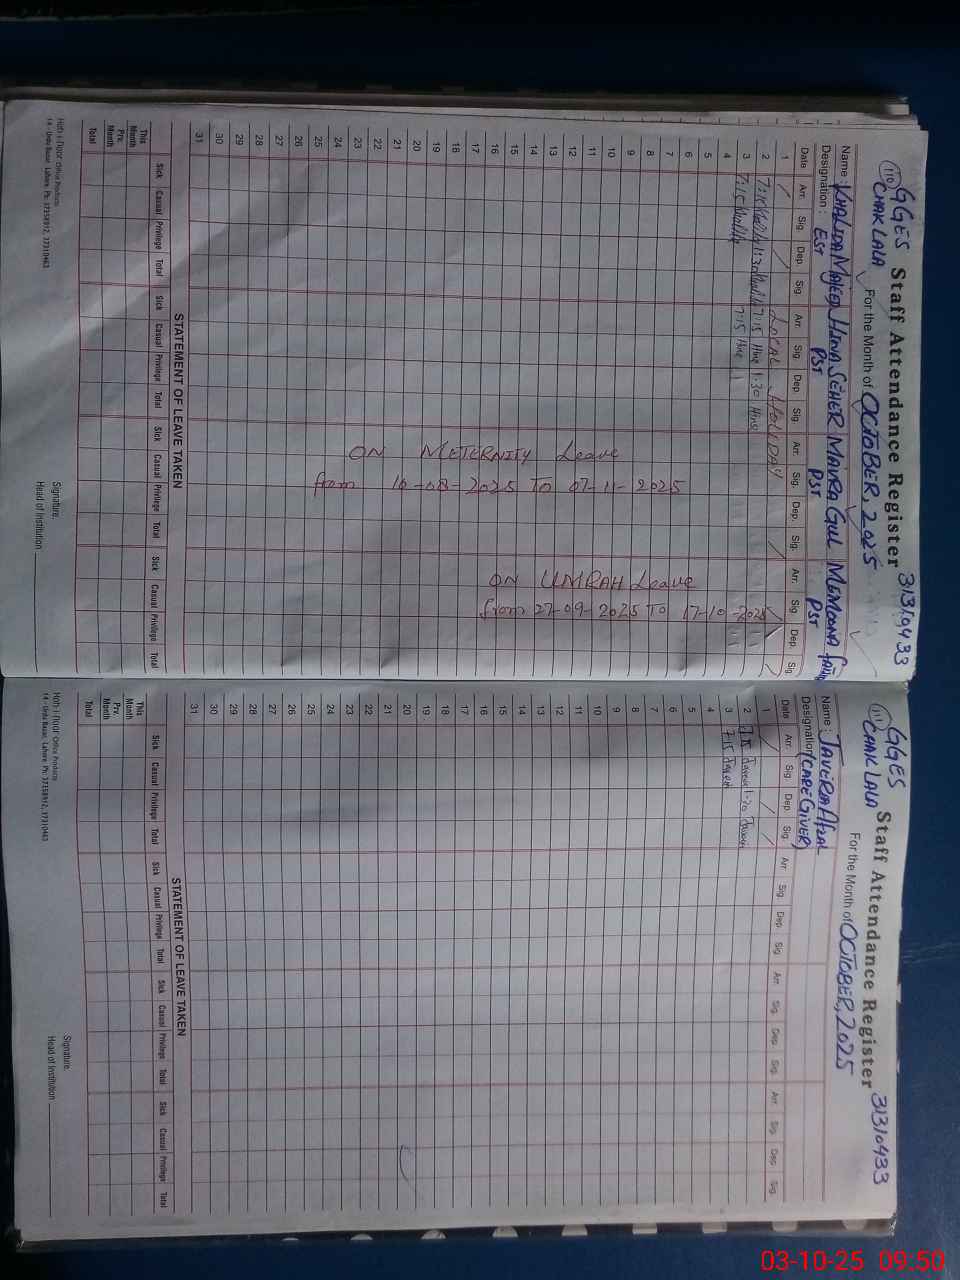 110 GGES Staff Attendance Register 31310433
CHAK LALA For the Month of OCTOBER, 2025
Name : KHALIDA MAJEED HINA SEHER MAVRA GUL MEMOONA
Designation : EST PST PST PST
Date Arr. Sig. Dep. Sig. Arr. Sig. Dep. Sig. Arr. Sig. Dep. Sig. Arr. Sig. Dep. Sig.
1 LOCAL HOLIDAY
2 7:15 1:30 7:15 Hina 1:30 Hina
3 7:15 7:15 Hina
4
5
6
7
8
9
10
11
12
13
14
15
16
17
18
19
20
21
22
23
24
25
26
27
28
29
30
31
ON METERNITY Leave
from 10-08-2025 TO 07-11-2025
ON UMRAH Leave
from 27-09-2025 TO 17-10-2025
STATEMENT OF LEAVE TAKEN
Sick Casual Privilege Total Sick Casual Privilege Total Sick Casual Privilege Total Sick Casual Privilege Total
This Month
Prv. Month
Total
Signature.
Head of Institution
Hafi-i-Noor Office Products
14 - Urdu Bazar, Lahore. Ph: 37358912, 37310463
111 GGES Staff Attendance Register 31310433
CHAK LALA For the Month of OCTOBER, 2025
Name : JAVERIA AFZAL
Designation (CARE GIVER)
Date Arr. Sig. Dep. Sig. Arr. Sig. Dep. Sig. Arr. Sig. Dep. Sig. Arr. Sig. Dep. Sig.
1
2 7:15 1:30
3 7:15
4
5
6
7
8
9
10
11
12
13
14
15
16
17
18
19
20
21
22
23
24
25
26
27
28
29
30
31
STATEMENT OF LEAVE TAKEN
Sick Casual Privilege Total Sick Casual Privilege Total Sick Casual Privilege Total Sick Casual Privilege Total
This Month
Prv. Month
Total
Signature.
Head of Institution
Office Products
14 - Urdu Bazar, Lahore. Ph: 37358912, 37310463
03-10-25 09:50